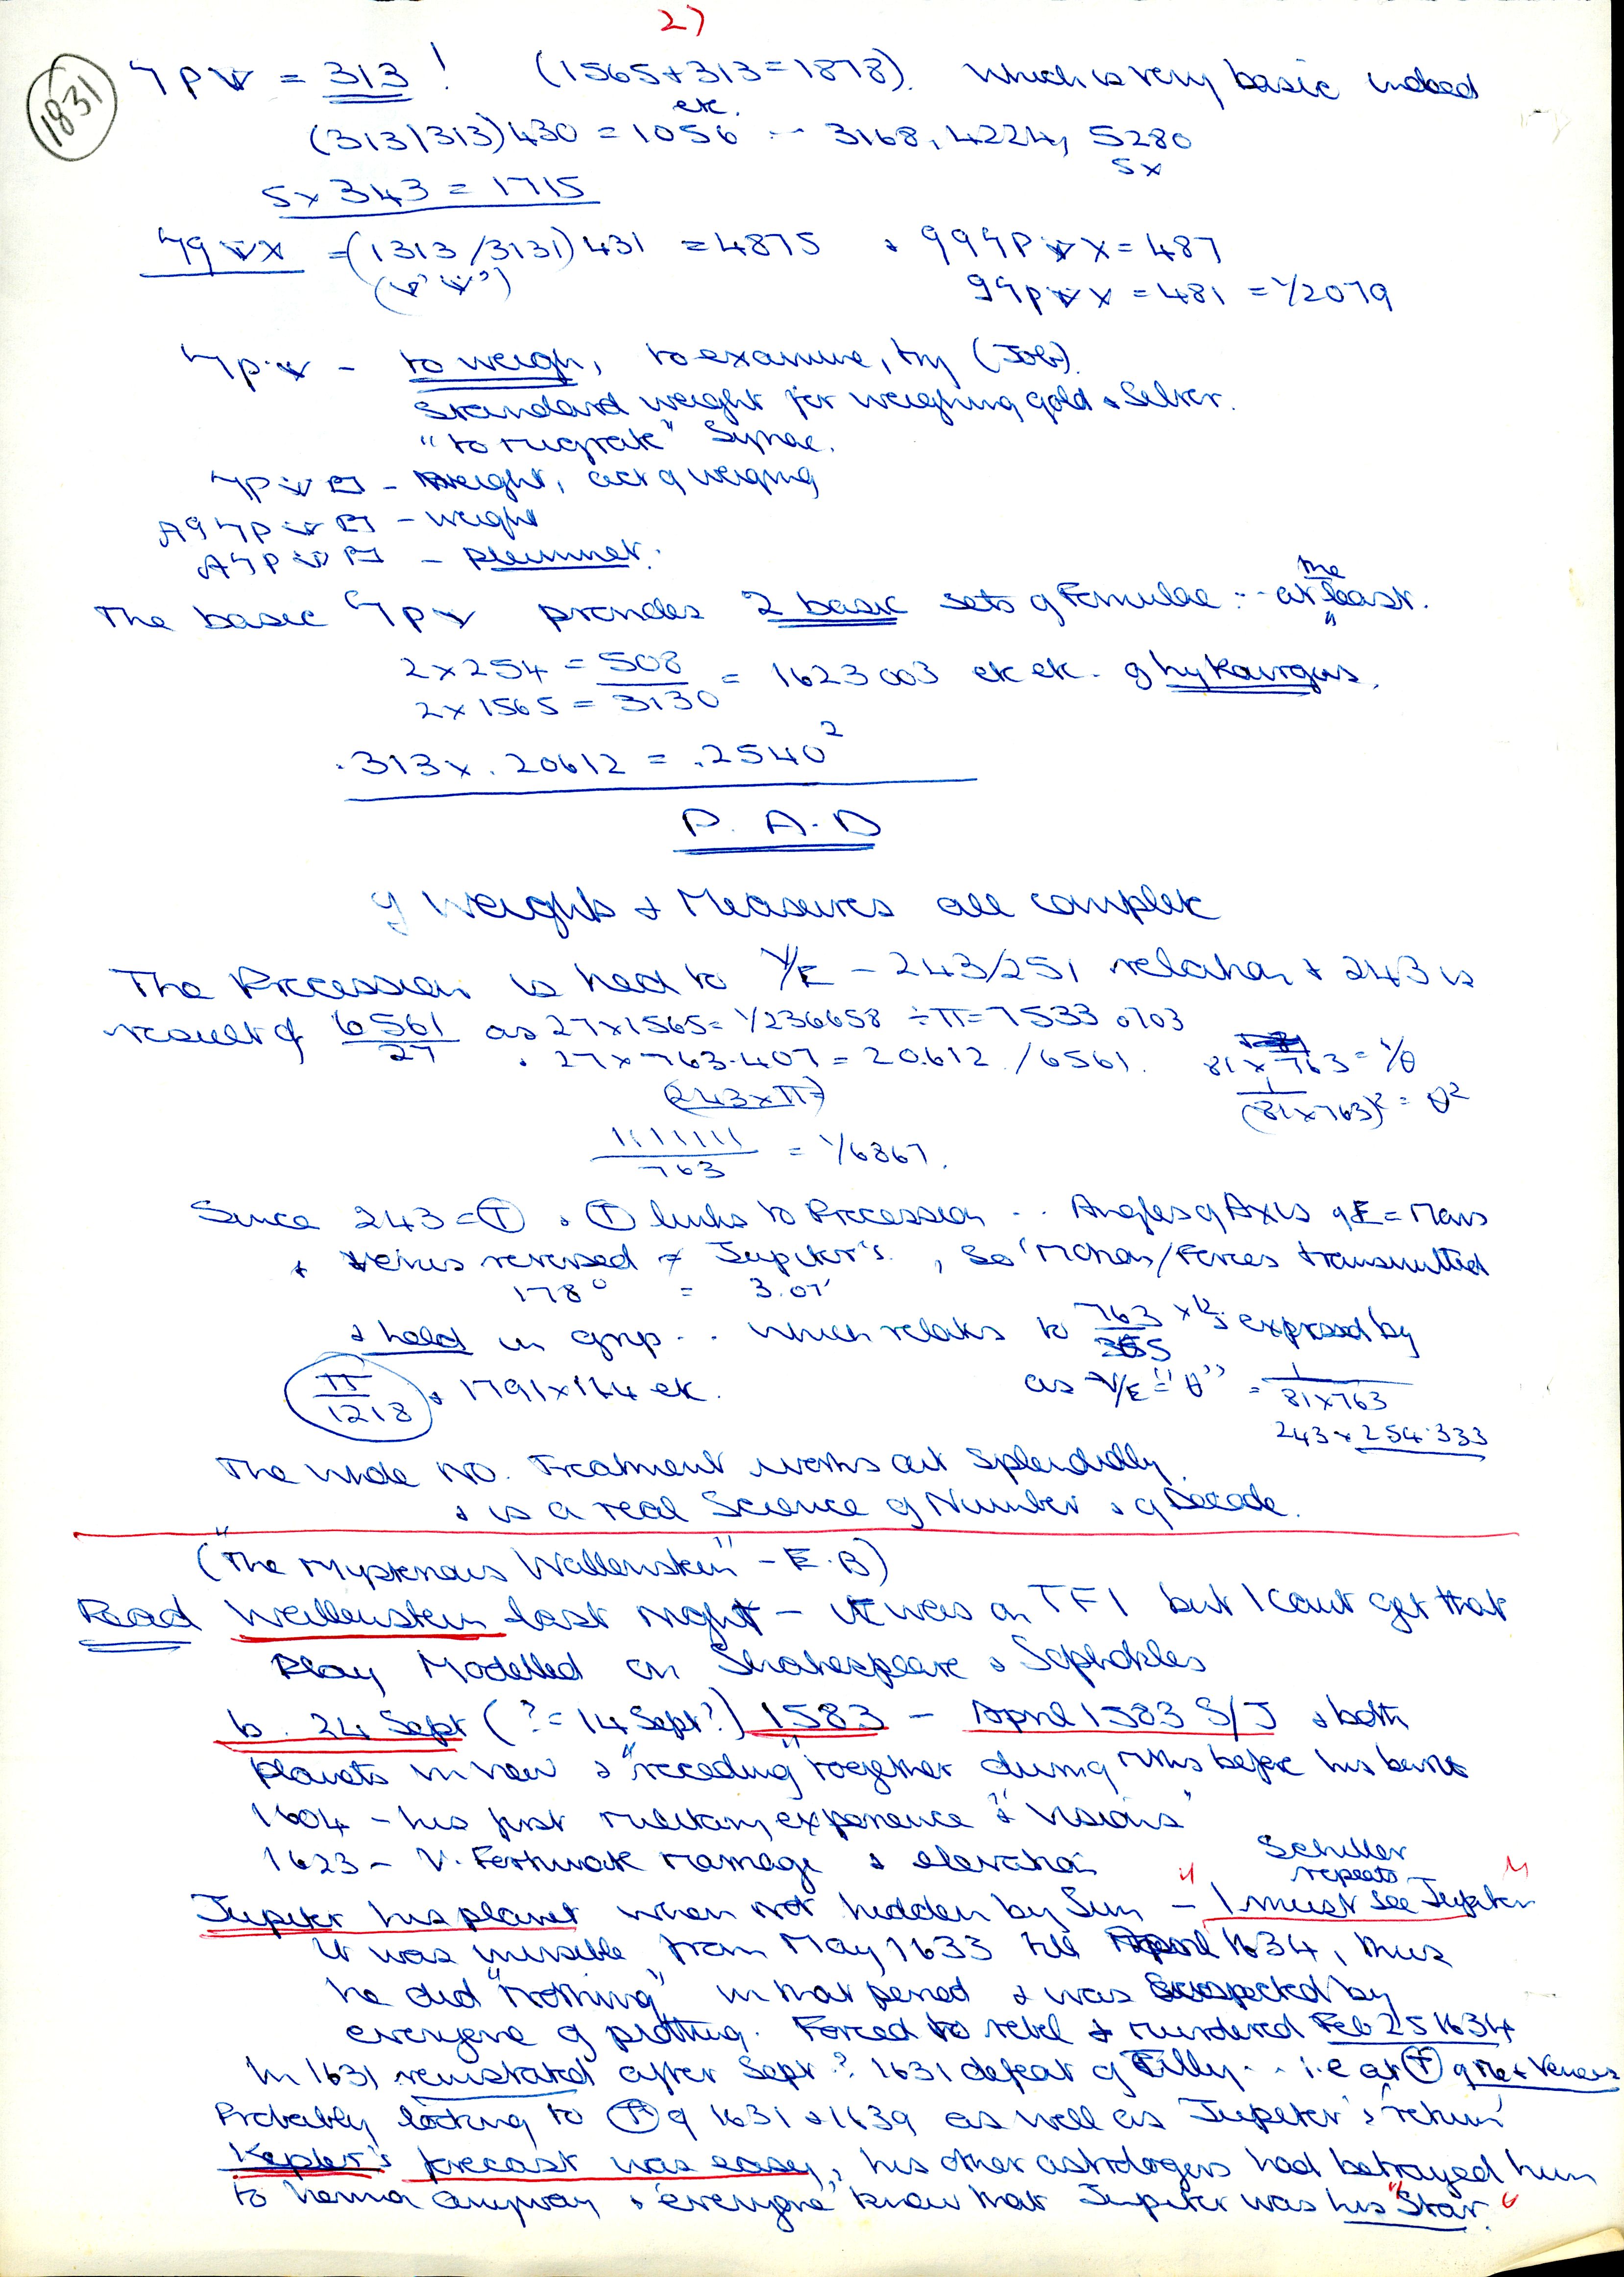 27
1831
= 313 ! (1565+313=1878). Which is very basic indeed
etc.
(313/313)430 = 1056 -- 3168, 4224, 5280
5x
5x 343 = 1715
= (1313/3131)431 = 4875 = 487
= 481 = 1/2079
- to weigh, to examine, try (Job).
Standard weight for weighing gold & Silver.
"to migrate" Syriac.
- weight, act of weighing
- weight
- plummet.
The basic provides 2 basic sets of Formulae :- at the least.
2 x 254 = 508
2 x 1565 = 3130 = 1623003 etc etc. of Lykourgus.
.313 x .20612 = .2540²
P. A. D
of Weights & Measures all complete
The Precession is tied to V/E - 243/251 relation & 243 is
result of 6561/27 as 27x1565 = 1/236658 ÷ π = 7533 0703
27 x 763.407 = 20.612 / 6561. 81 x 763 = 1/θ
(243 x π) 1/(81x763)² = θ²
1111111/763 = 1/6867.
Since 243 = Ⓣ, Ⓣ links to Precession .. Angles of Axis of E = Mars
& Venus reversed ≠ Jupiter's, so Motion/Forces transmitted
178° = 3.07'
& held in grip .. which relates to 763/365 x 12 & expressed by
π/1218 & 1791x144 etc. as V/E = "θ" = 1/81x763
243 x 254.333
The whole No. Treatment works out splendidly
& is a real Science of Number & of Decade.
("The Mysterious Wallenstein" - E.B)
Read Wallenstein last night - it was on TF1 but I cant get that
Play Modelled on Shakespeare & Sophokles
b. 24 Sept (? = 14 Sept?) 1583 - April 1583 S/J & both
planets in view & "receding" together during mths before his birth
1604 - his first military experience & "Visions"
1623 - marriage & elevation
Schiller
repeats
Jupiter his planet when not hidden by Sun - "I must see Jupiter"
it was invisible from May 1633 till April 1634, thus
he did "nothing" in that period & was suspected by
everyone of plotting. Forced to rebel & murdered Feb 25 1634
In 1631 reinstated after Sept? 1631 defeat of Tilly .. i.e at Ⓣ of Me & Venus
Probably looking to Ⓣ of 1631 & 1639 as well as Jupiter's 'return'
Kepler's forecast was easy, his other astrologers had betrayed him
to anyway & 'everyone' knew that Jupiter was his "Star".